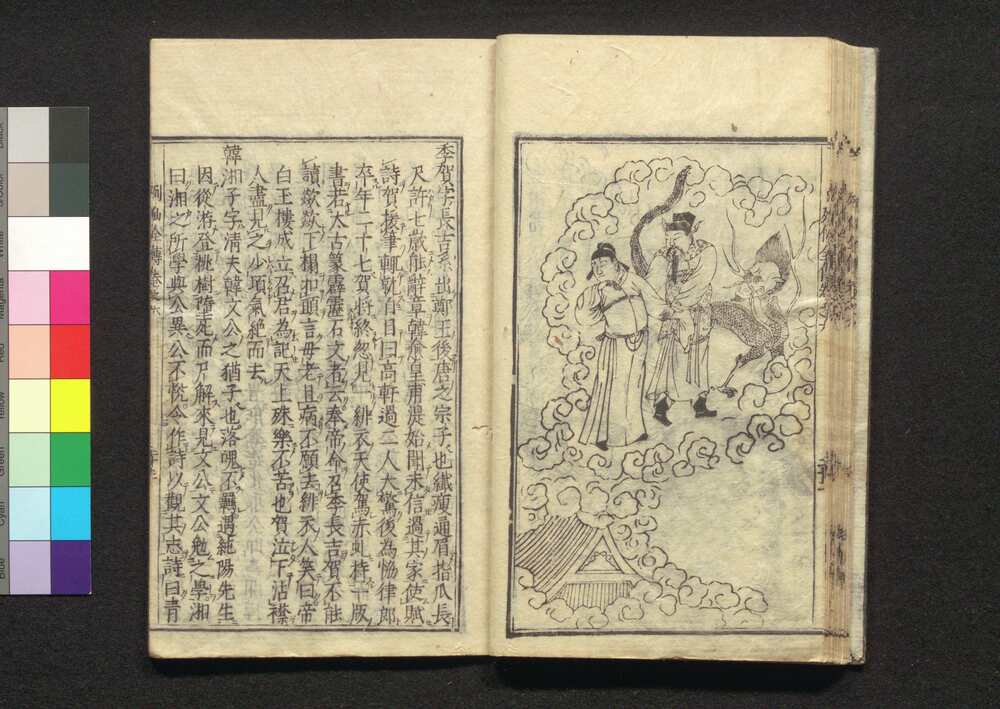 李賀字長吉系出鄭王後唐之宗子也纖瘦通眉指爪長
尺許七歳能辭章韓愈皇甫湜始聞未信過其家使賦
詩賀援筆輙就自目曰高軒過二人大驚後為恊律郎
卒年二十七賀將終忽見一緋衣天使駕赤虬持一版
書若太古篆霹靂石文者云奉帝命召李長吉賀不能
讀欻欻下榻扣頭言母老且病不願去緋衣人笑曰帝
白玉樓成立召君為記天上殊樂不苦也賀泣下沾襟
人盡見之少頃氣絶而去
韓湘子字清夫韓文公之猶子也落魄不羈遇純陽先生
因從游登桃樹墮死而尸解來見文公文公勉之學湘
曰湘之所學與公異公不悦令作詩以觀其志詩曰青
Black
White
Magenta
Red
Yellow
Green
Cyan
Blue